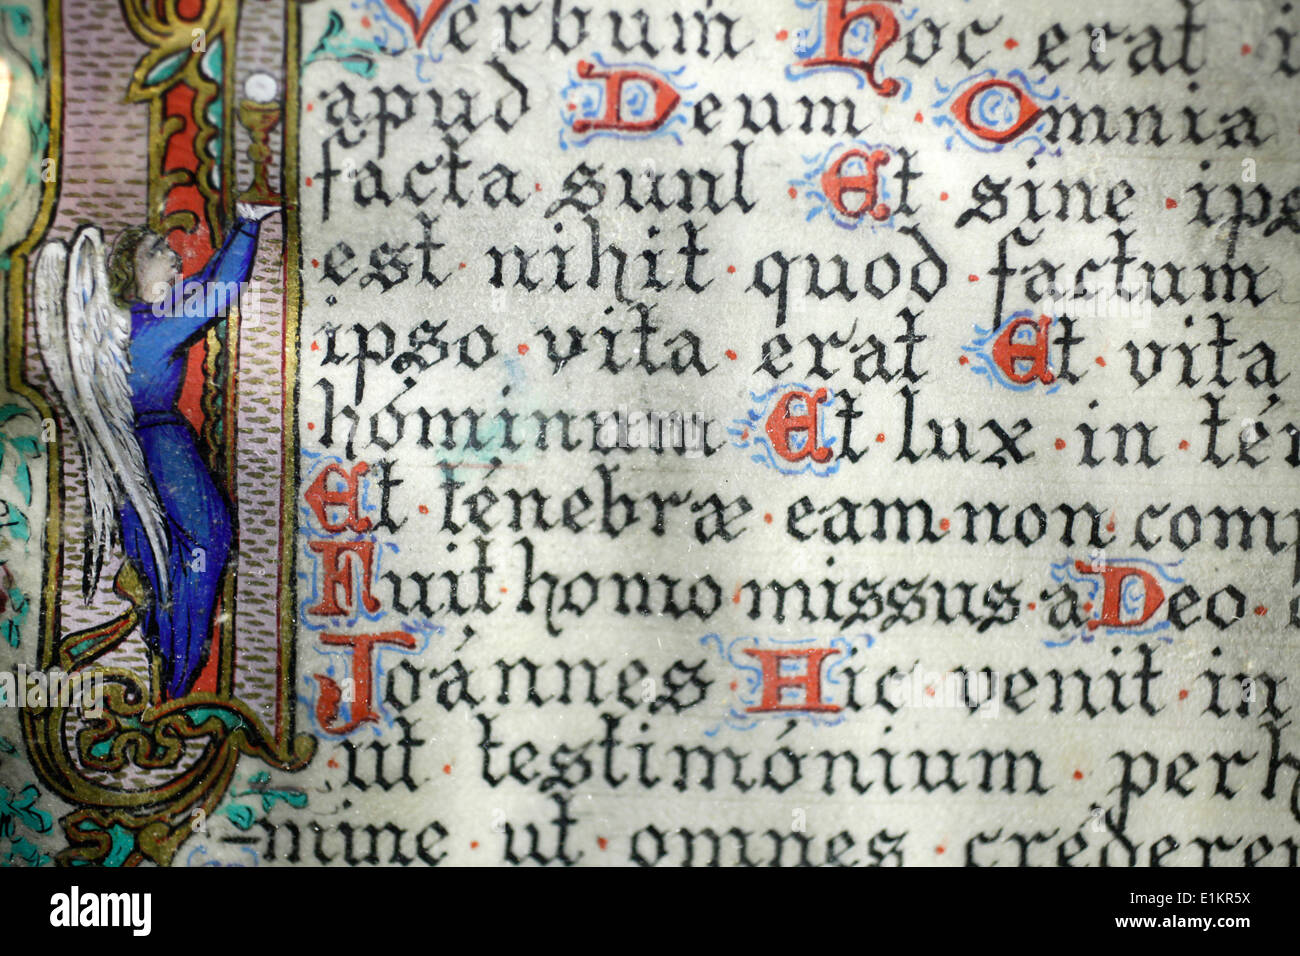 Verbum · Hoc · erat · i
· apud Deum · Omnia
facta · sunt · Et · sine · ips
· est nihil · quod · factum
· ipso · vita · erat · Et · vita ·
hóminum · Et lux · in · té
Et · ténebræ · eam · non · com
Fuit · homo · missus · a Deo ·
Joánnes · Hic · venit · in
· ut · testimónium · perh
-mine · ut · omnes · créderen
alamy
Image ID: E1KR5X
www.alamy.com